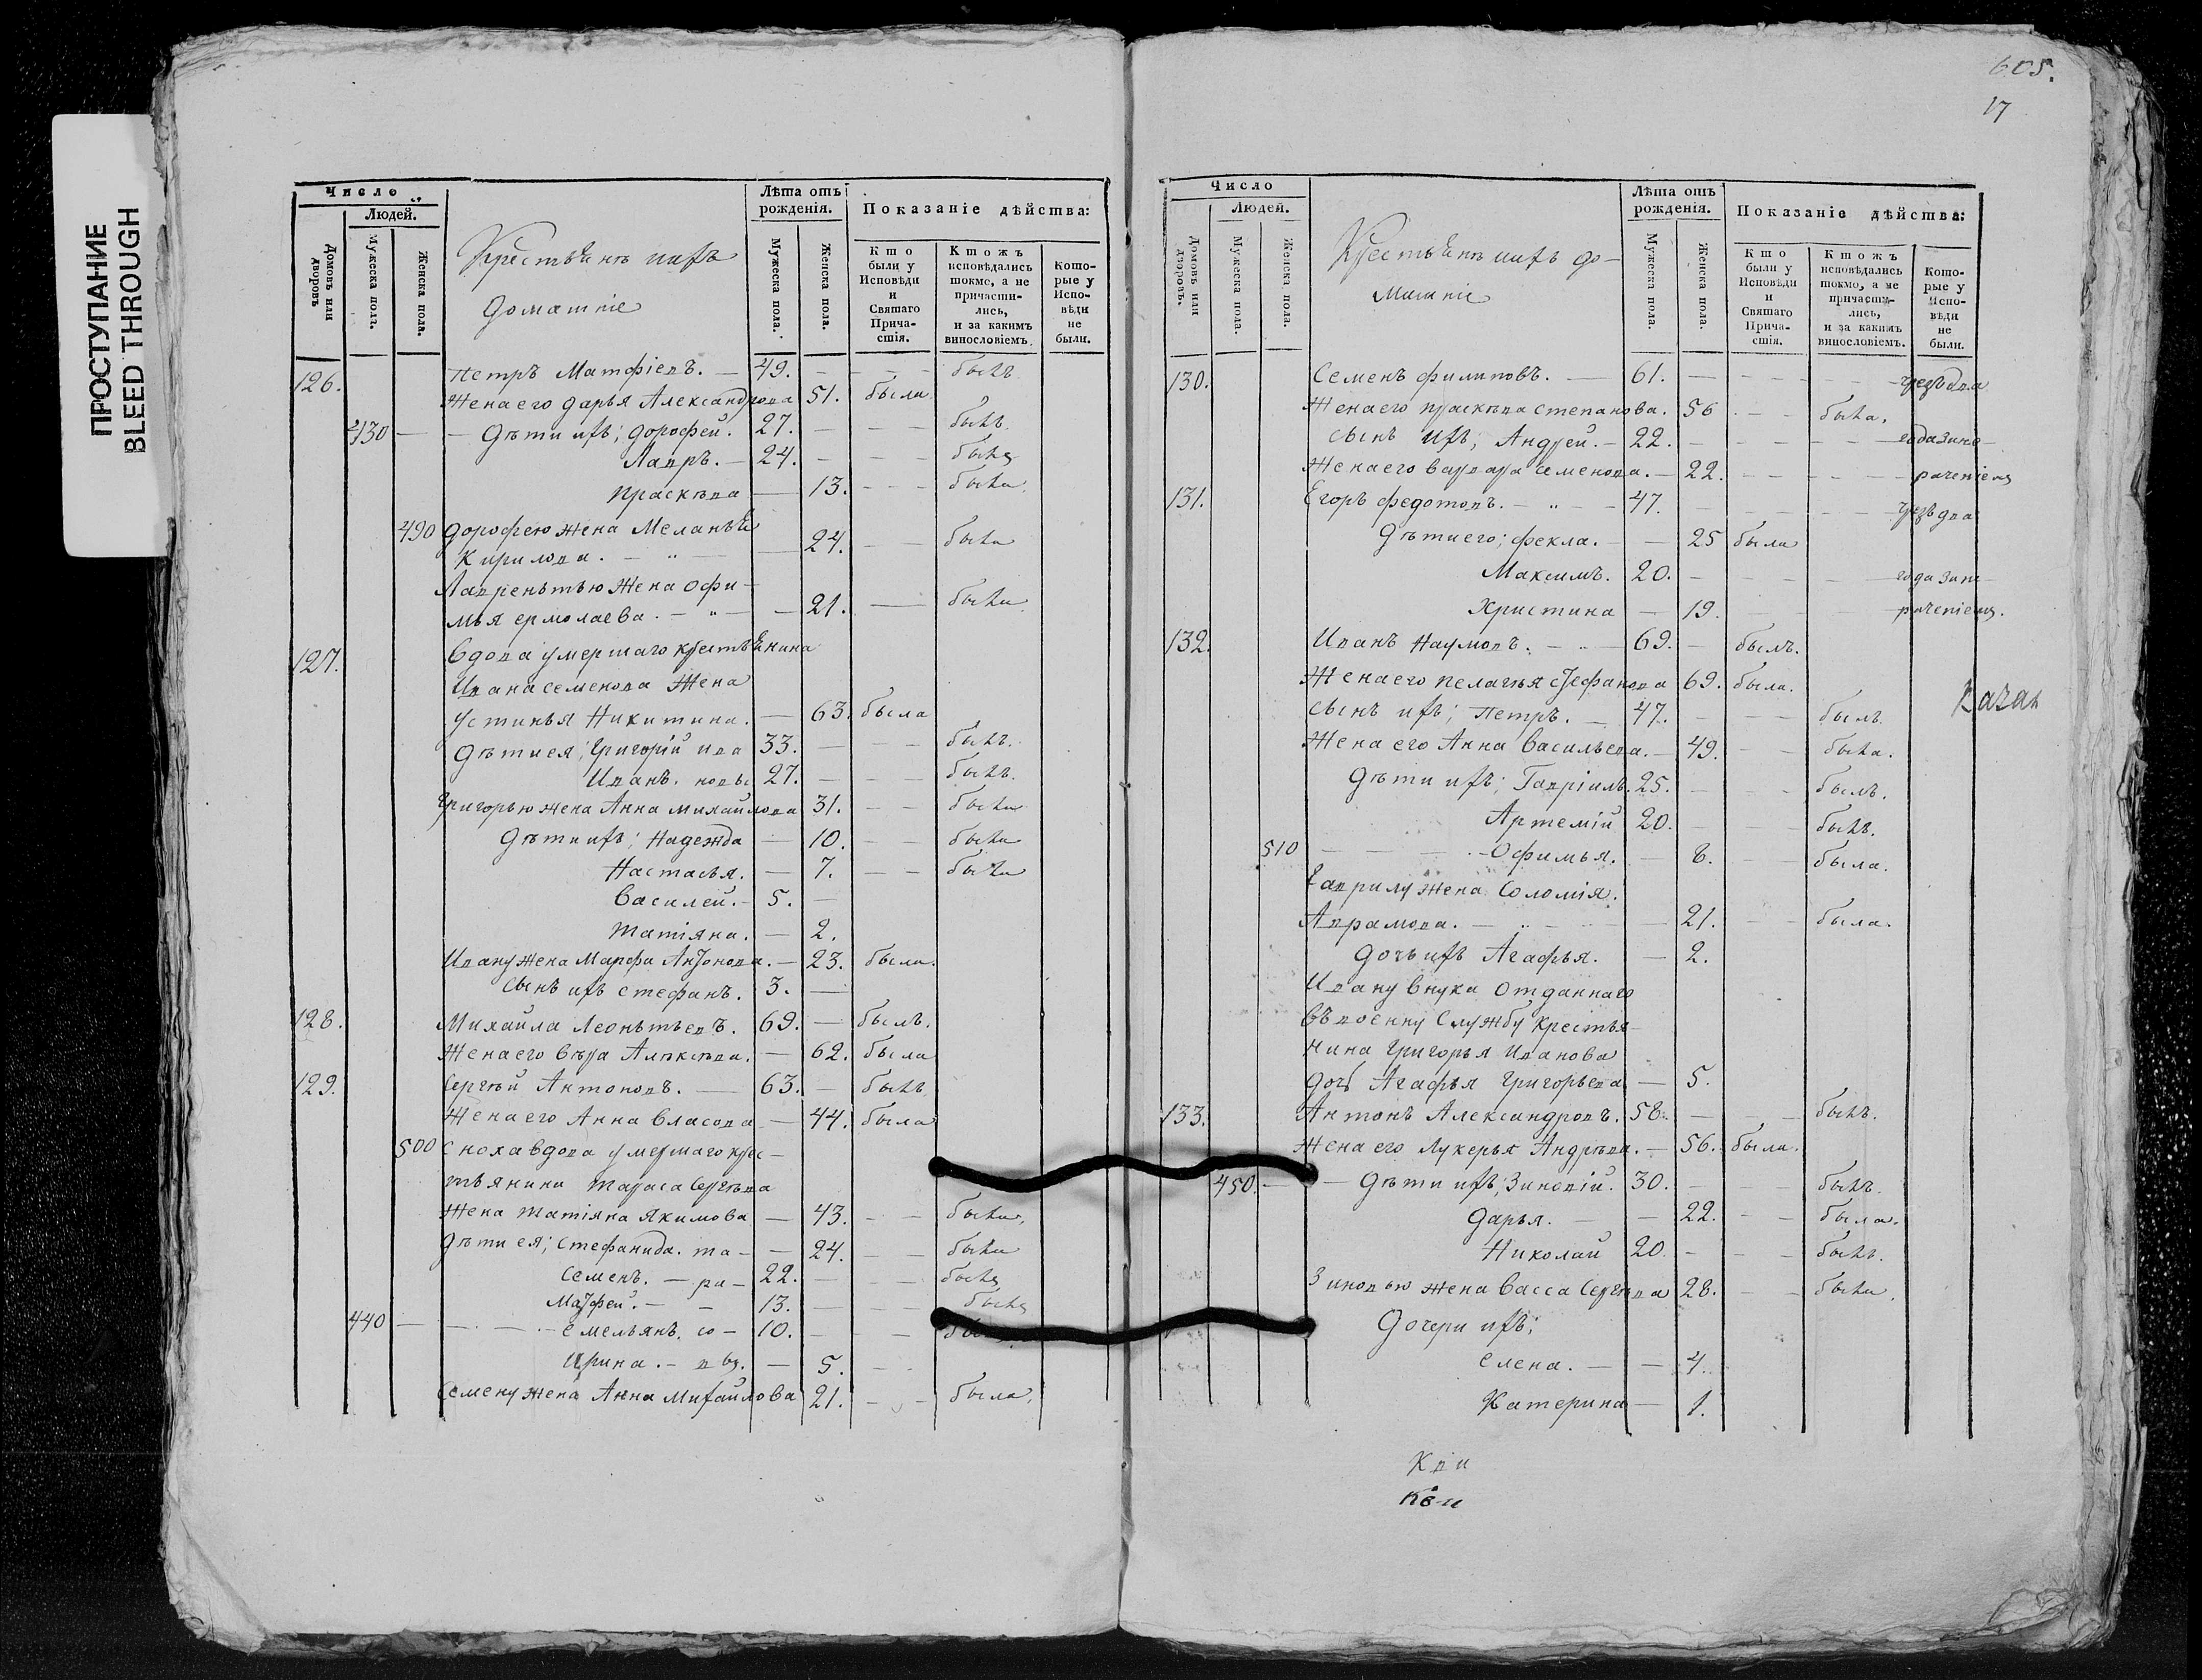 ПРОСТУПАНИЕ
BLEED THROUGH
Число
Людей.
Домовъ или дворовъ
Мужеска пола.
Женска пола.
Крестьянъ ихъ
домашніе
Лѣта отъ рожденія.
Мужеска пола.
Женска пола.
Показаніе дѣйства:
Кто были у Исповѣди и Святаго Прича-стія.
Ктожъ исповѣдались токмо, а не причасти-лись, и за какимъ винословіемъ
Кото-рые у Испо-вѣди не были.
126. Петръ Матфіевъ. — 49. — былъ
Жена его дарья Александрова 51. была
430 — Дѣти ихъ; дорофей. 27. — былъ
Лавръ. — 24. —
Прасковья — 13. — была.
490 дорофею жена Меланья
Кирилова. — „ — 24. — была
Лаврентью жена офи-
мья ермолаева. — „ — 21. — была.
127. Вдова умершаго крестьянина
Ивана семенова жена
Устинья Никитина. — 63. была
Дѣти ея; Григорій ива 33. — былъ.
Иванъ. новы 27. — былъ.
Григорью жена Анна михайлова 31. — была
Дѣти ихъ; Надежда — 10. — была
Настасья. — 7. — была
Василей. — 5. —
татіяна. — 2.
Ивану жена Марфа Антонова. — 23. была.
Сынъ ихъ стефанъ. 3. —
128. Михайла Леонтьевъ. 69. — былъ.
Жена его вѣра Алексѣва. — 62. была
129. Сергѣй Антоновъ. — 63. — былъ.
Жена его Анна власова — 44. была
500 Сноха вдова умершаго крес-
тьянина тараса Сергѣва
Жена татіяна Якимова — 43. — была.
Дѣти ея; стефанида. та- — 24. — была
Семенъ. — ра- 22. —
Матфей. — 13. —
440 — емельянъ. со- 10. —
Ирина. — — 5. —
Семену жена Анна Михайлова 21. — была.
605.
17
Число
Людей.
Домовъ или дворовъ.
Мужеска пола.
Женска пола.
Крестьянъ ихъ до-
машніе
Лѣта отъ рожденія.
Мужеска пола.
Женска пола.
Показаніе дѣйства:
Кто были у Исповѣди и Святаго Прича-стія.
Ктожъ исповѣдались токмо, а не причасти-лись, и за какимъ винословіемъ.
Кото-рые у Испо-вѣди не были.
130. Семенъ филиповъ. — 61. — чрезъ два
Жена его прасковья степанова. 56 — была.
Сынъ ихъ; Андрей. — 22. — года за не-
Жена его варвара семенова. — 22. — раченіемъ
131. Егоръ федотовъ. — „ — 47. — чрезъ два
Дѣти его; фекла. — 25 была
Максимъ. 20. — года за не-
Христина — 19. раченіемъ.
132. Иванъ Наумовъ. — „ — 69. — былъ.
Жена его пелагья стефанова 69. была.
Сынъ ихъ; петръ. — 47. — былъ.
Жена его Анна васильева. — 49. — была.
Дѣти ихъ; Гавріилъ. 25. — былъ.
Артемій 20. — былъ.
510 — Офимья. — 8. — была.
Гаврилу жена Соломія.
Аврамова. — „ — 21. — была.
Дочь ихъ Агафья. — 2.
Ивану внука отданнаго
въ военну Службу крестья-
нина Григорья Иванова
Дочь Агафья Григорьева — 5.
133. Антонъ Александровъ. 58. — былъ.
Жена его Лукерья Андрѣва. — 56. была.
450. — Дѣти ихъ; Зиновій. 30. — былъ.
Дарья. — — 22. — была.
Николай 20. — былъ.
Зиновью жена васса Сергѣва 28. — была.
Дочери ихъ;
елена. — — 4.
Катерина — 1.
Казан